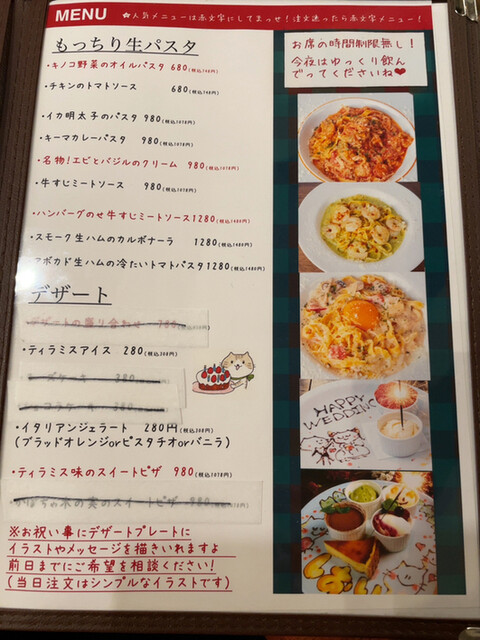 MENU ✿人気メニューは赤文字にしてまっせ!注文迷ったら赤文字メニュー!
もっちり生パスタ
・キノコ野菜のオイルパスタ 680(税込748円)
・チキンのトマトソース 680(税込748円)
・イカ明太子のパスタ 980(税込1078円)
・キーマカレーパスタ 980(税込1078円)
・名物!エビとバジルのクリーム 980(税込1078円)
・牛すじミートソース 980(税込1078円)
・ハンバーグのせ牛すじミートソース1280(税込1408円)
・スモーク生ハムのカルボナーラ 1280(税込1408円)
アボカド生ハムの冷たいトマトパスタ1280(税込1408円)
デザート
デザートの盛り合わせ
・ティラミスアイス 280(税込308円)
380
380
・イタリアンジェラート 280円(税込308円)
(ブラッドオレンジorピスタチオorバニラ)
・ティラミス味のスイートピザ 980(税込1078円)
かぼちゃ木の実のスイートピザ 980
※お祝い事にデザートプレートに
イラストやメッセージを描きいれますよ
前日までにご希望を相談ください!
(当日注文はシンプルなイラストです)
お席の時間制限無し!
今夜はゆっくり飲ん
でってくださいね❤
HAPPY
WEDDING